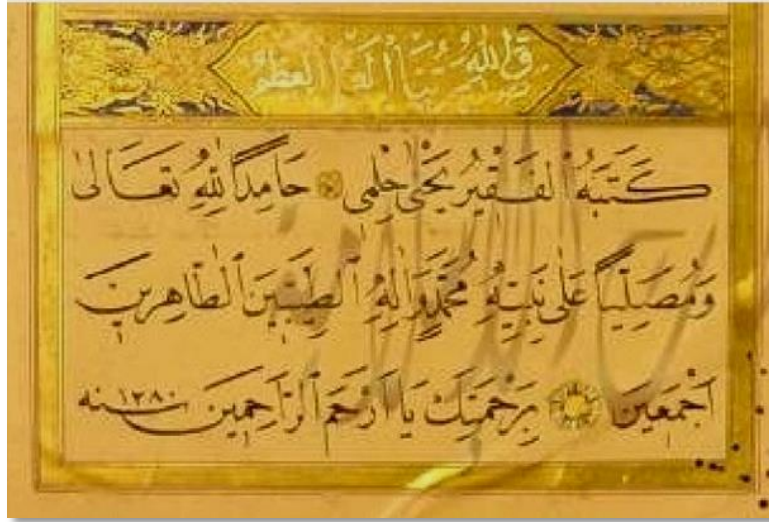 صدق الله ربنا العلي العظيم
كَتَبَهُ الفَقِيرُ يَحْيٰى حِلْمِى حَامِدًا لِلّٰهِ تَعَالٰى
وَمُصَلِّيًا عَلٰى نَبِيِّهِ مُحَمَّدٍ وَاٰلِهِ الطَّيِّبِينَ الطَّاهِرِينَ
اَجْمَعِينَ بِرَحْمَتِكَ يَا اَرْحَمَ الرَّاحِمِينَ سنه ١٢٨٠